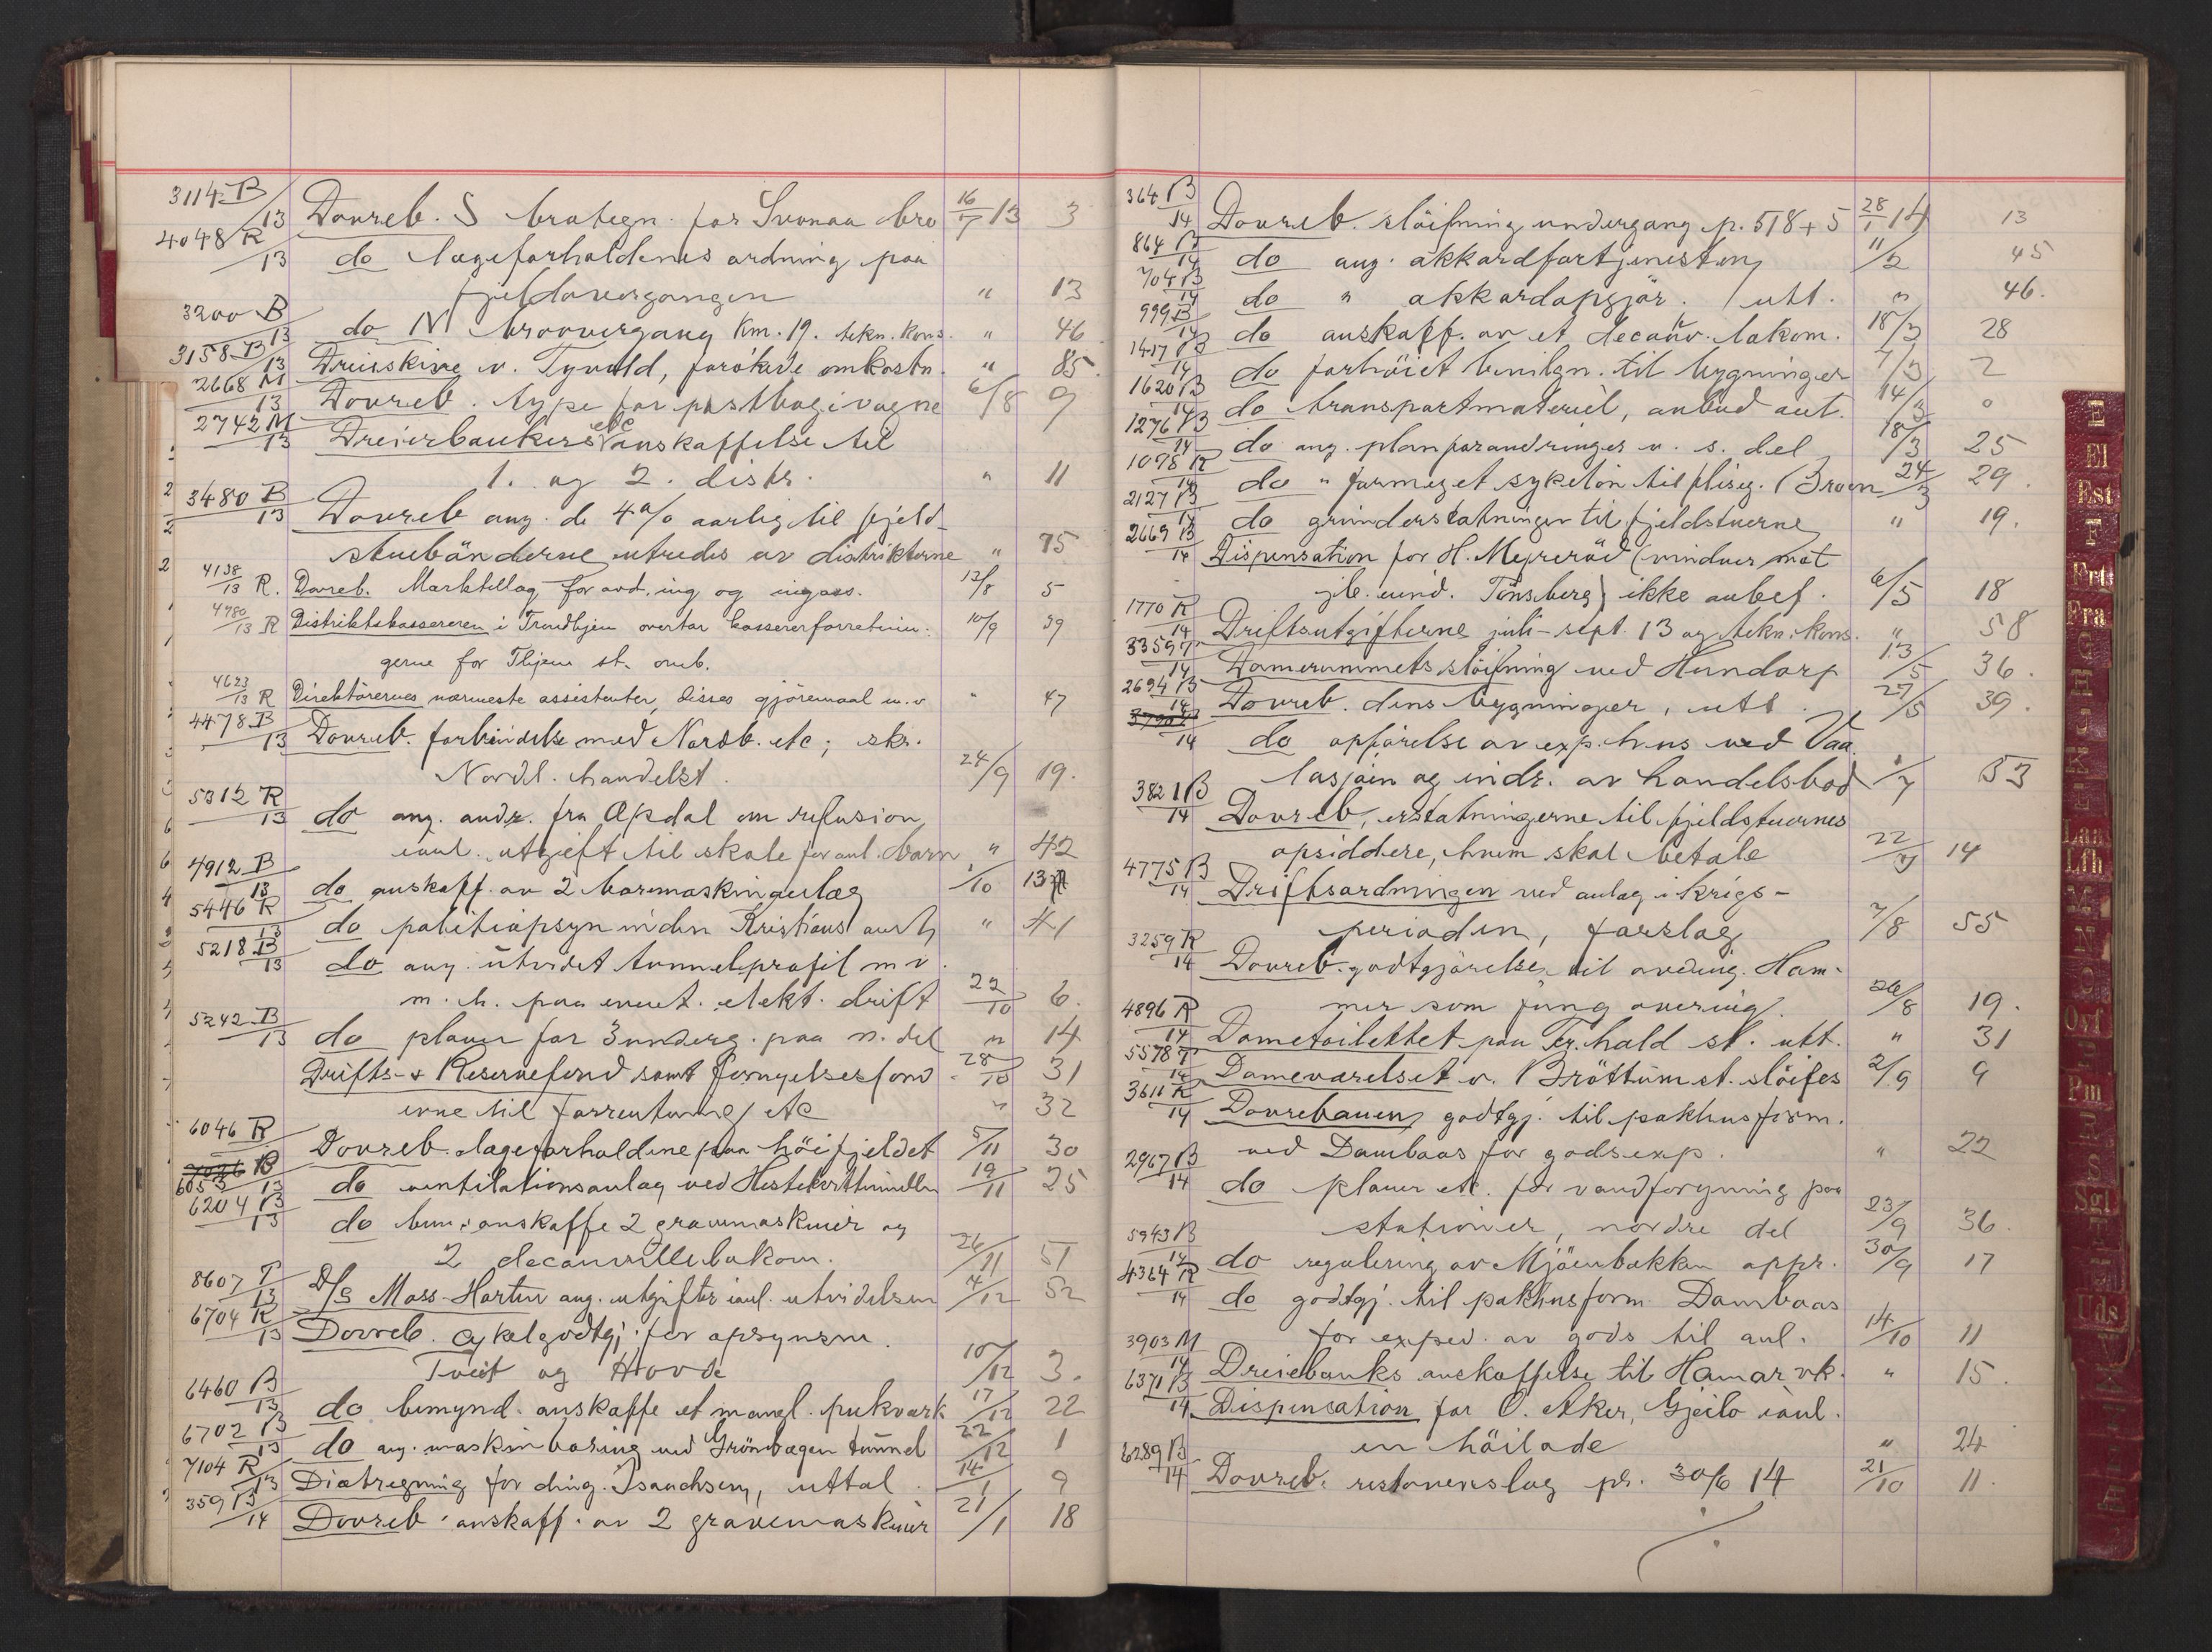 3114 B/13 Dovreb. S brotegn. for Svonaa bro 16/7 13 3
4048 R/13 do lægeforholdenes ordning paa
fjeldovergangen " 13
3200 B/13 do N broovergang Km. 19. tekn. kons. " 46
3158 B/13 Dreieskive v. Tynold, forökede omkostn. " 85.
2668 M/13 Dovreb. type for postbogivogne 6/8 9
2742 M/13 Dreierbænkers etc anskaffelse til
1. og 2. distr. " 11
3480 B/13 Dovreb ang. de 4% aarlig til fjeld-
stuebönderne utredes av distrikterne " 75
4138/13 R. Dovreb. Marktillæg for avd. ing og ingass. 12/8 5
4780/13 R Distriktskassereren i Trondhjem overtar kassererforretnin-
10/9 39
gerne for Thjem st. omb.
4623/13 R Direktörernes nærmeste assistenter, disses gjöremaal m.v " 47
4478 B/13 Dovreb. forbindelse med Nordb. etc; skr.
Nordl. handelsst. 24/9 19.
5312 R/13 do ang. andr. fra Opdal om refusion
ianl. utgift til skole for anl. barn " 42
4912 B/13 do anskaff. av 2 boremaskinanlæg 1/10 13
5446 R/13 do politiopsyn inden Kristians amt " 41
5218 B/13 do ang. utvidet tunnelprofil m v.
m. h. paa event. elekt. drift 22/10 6.
5242 B/13 do planer for 3 underg. paa n. del " 14
Drifts- & Reservefond samt fornyelsesfond 28/10 31
erne til forrentning etc " 32
6046 R Dovreb. lægeforholdene paa höifjeldet 5/11 30
6053 B/13 do ventilationsanlæg ved Hestekrittunnellen 19/11 25
6204 B/13 do bem. anskaffe 2 gravemaskiner og
2 decauvillelokom. 26/11 51
8607 T/13 D/S Moss-Horten ang. utgifter ianl. utvidelsen 4/12 52
6704 R/13 Dovreb. Cykelgodtgj. for opsynsm.
Tveit og Hovde 10/12 3.
6460 B/13 do bemynd. anskaffe et mangl. pukværk 17/12 22
6702 B/13 do ang. maskinboring ved Grönbogen tunnel 22/12 1
7104 R/13 Diætregning for ding. Isaachsen, uttal. 14/1 9
359 B/14 Dovreb. anskaff. av 2 gravemaskiner 21/1 18
364 B/14 Dovreb. slöifning undergang p. 518+5 28/1 14 13
864 B/14 do ang. akkordfortjenesten 11/2 45
704 B/14 do " akkordopgjör. utt. " 46.
999 B/14 do anskaff. av et decauv. lokom. 18/3 28
1417 B/14 do forhöiet bevilgn. til bygninger 7/3 2
1620 B/14 do transportmateriel, anbud ant. 14/3 0
1276 B/14 do ang. planforandringer v. s. del 18/3 25
1078 R/14 do " formeget sykelön til fliseg. Broen 24/3 29.
2127 B/14 do grunderstatninger til fjeldstuerne " 19.
2669 B/14 Dispensation for H. Mejreröd (vinduer mot
jb. eiend. Tönsberg) ikke anbef. 6/5 18
1770 R/14 Driftsutgifterne juli-sept. 13 og tekn. kons. " 58
3359 T/14 Damerummets slöifning ved Hundorp 13/5 36.
2694 B/14 Dovreb. dens bygninger, utt. 27/5 39.
do opförelse av exp. hus ved Vaa-
lasjöen og indr. av handelsbod 1/7 53
3821 B/14 Dovreb, erstatningerne til fjeldstuernes
opsiddere, hvem skal betale 22/7 14
4775 B/14 Driftsordningen ved anlæg i krigs-
perioden, forslag 7/8 55
3259 R/14 Dovreb. godtgjörelse til avding. Ham-
mer som fung overing. 26/8 19.
4896 R/14 Dametoilettet paa Fr. hald st. utt. " 31
5578 T/14 Dameværelset v. Bröttum st. slöifes 2/9 9
3611 R/14 Dovrebanen, godtgj. til pakhusform.
ved Dombaas for godsexp. " 22
2967 B/14 do planer etc. for vandforsyning paa
stationer, nordre del 23/9 36.
5943 B/14 do regulering av Mjöenbækken appr. 30/9 17
4364 R/14 do godtgj. til pakhusform. Dombaas
for exped. av gods til anl. 14/10 11
3903 M/14 Dreiebænks anskaffelse til Hamar vk. " 15.
6371 B/14 Dispensation for O. Aker, Gjeilo ianl.
en höilade " 24
6289 B/14 Dovreb. restanseslag pr. 30/6 14 21/10 11.
E
El
Est
F
Frt
Fra
G
H
I
K
L
Lan
Lfh
M
N
O
Ovf
P
Pm
R
S
Sgl
T
U
Uds
V